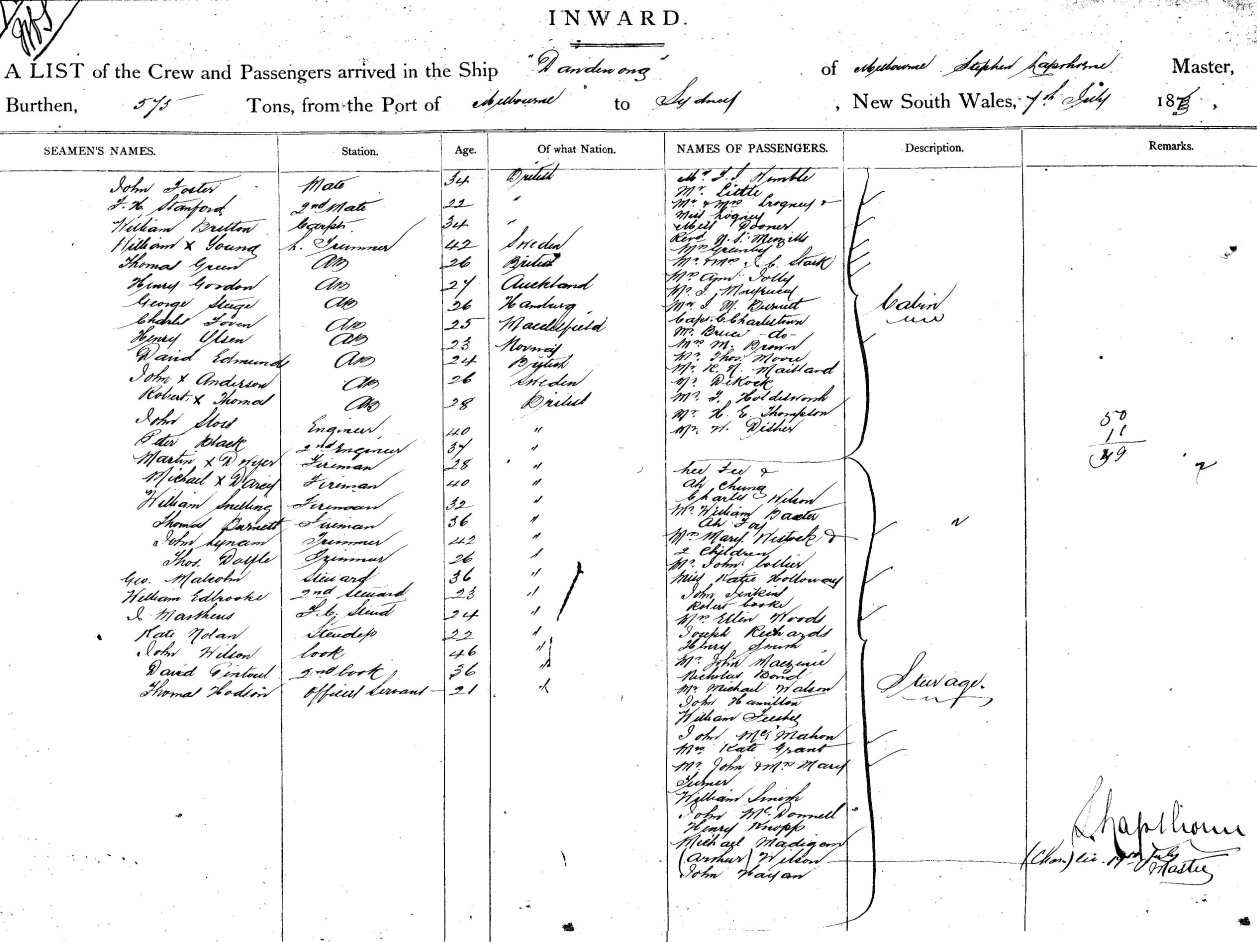 INWARD.
A LIST of the Crew and Passengers arrived in the Ship "Dandenong" of Melbourne Stephen Lapthorne Master,
Burthen, 575 Tons, from the Port of Melbourne to Sydney, New South Wales, 7th July 187
SEAMEN'S NAMES. Station. Age. Of what Nation. NAMES OF PASSENGERS. Description. Remarks.
John Foster Mate 34 British
F. H. Stanford 2nd Mate 22 "
William Britton Carptr 34 "
William x Young L. Trimmer 42 Sweden
Thomas Green AB 26 British
Henry Gordon AB 27 Auckland
George AB 26 Hamburg
Charles AB 25 Macclesfield
Henry Olsen AB 23 Norway
David Edmunds AB 24 British
John x Anderson AB 26 Sweden
Robert x Thomas AB 28 British
John Engineer 40 "
Peter Black 2nd Engineer 37 "
Martin x Dwyer Fireman 28 "
Michael x Darcy Fireman 40 "
William Snelling Fireman 32 "
Thomas Burnett Fireman 36 "
John Lynam Trimmer 42 "
Thos. Trimmer 26 "
Geo. Malcolm Steward 36 "
William Edbrooke 2nd Steward 23 "
J. Matthews F. C. Stewd 24 "
Kate Nolan Stewdess 22 "
John Wilson Cook 46 "
David Gintoul 2nd Cook 36 "
Thomas Hodson Officers Servant 21 "
Mr. T. J. Humble
Mr. Little
Mr & Mrs &
Miss
Miss Dooner
Revd. N. S. Menzells
Mrs
Mr. & Mrs J. C. Stark
Mrs Ann Jolly
Mr. J.
Mr J. M. Burnett
Capt. C. Charlestown
Mr. Bruce - do -
Mrs M. Brown
Mr. Thos. Moore
Mr. R. N. Maillard
Mr. DeKock
Mr. F. Holdsworth
Mr. H. E. Thompson
Mr. W. Disher
Cabin
Lee Fee &
Ah Chung
Charles Wilson
Mr. William Baxter
Ah Foy
Mrs Mary &
2 Children
Mr. John Collier
Miss Katie Holloway
John Jenkins
Robert Cooke
Mrs Ellen Woods
Joseph Richards
Henry Smith
Mr. John Mackenzie
Nicholas Bond
Mr. Michael Watson
John Hamilton
William
John McMahon
Mrs Kate Grant
Mr. John & Mrs Mary
Turner
William Smith
John McDonnell
Henry Knopp
Michael Madigan
(Arthur) Wilson
John Hayan
Steerage.
50
11
39
S Lapthorne
Master